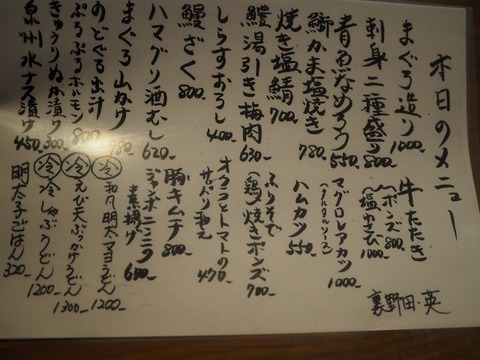 本日のメニュー
まぐろ造り 1000-
刺身二種盛り 800-
青魚なめろう 550-
鰤かま塩焼き 780-
焼き塩鯖 700-
鱧湯引き梅肉 630-
しらすおろし 400-
鰻ざく 800-
ハマグリ酒むし 620-
まぐろ山かけ 780-
のどぐろ出汁
ぷるぷるホルモン 800-
きゅうりぬか漬け 300-
泉州水ナス漬け 450-
牛たたき
(ポンズ 800-
(塩わさび 1000-
マグロレアカツ
(タルタルソース) 1000-
ハムカツ 550-
ふりそで
(鶏)焼きポンズ 700-
オクラとトマトの
サッパリ和え 470-
豚キムチ 800-
ジャンボニンニク
素揚げ 600-
冷 和風明太マヨうどん 1200-
冷 えび天ぶっかけうどん 1300-
冷 冷しゃぶうどん 1200-
明太子ごはん 300-
裏野田・英